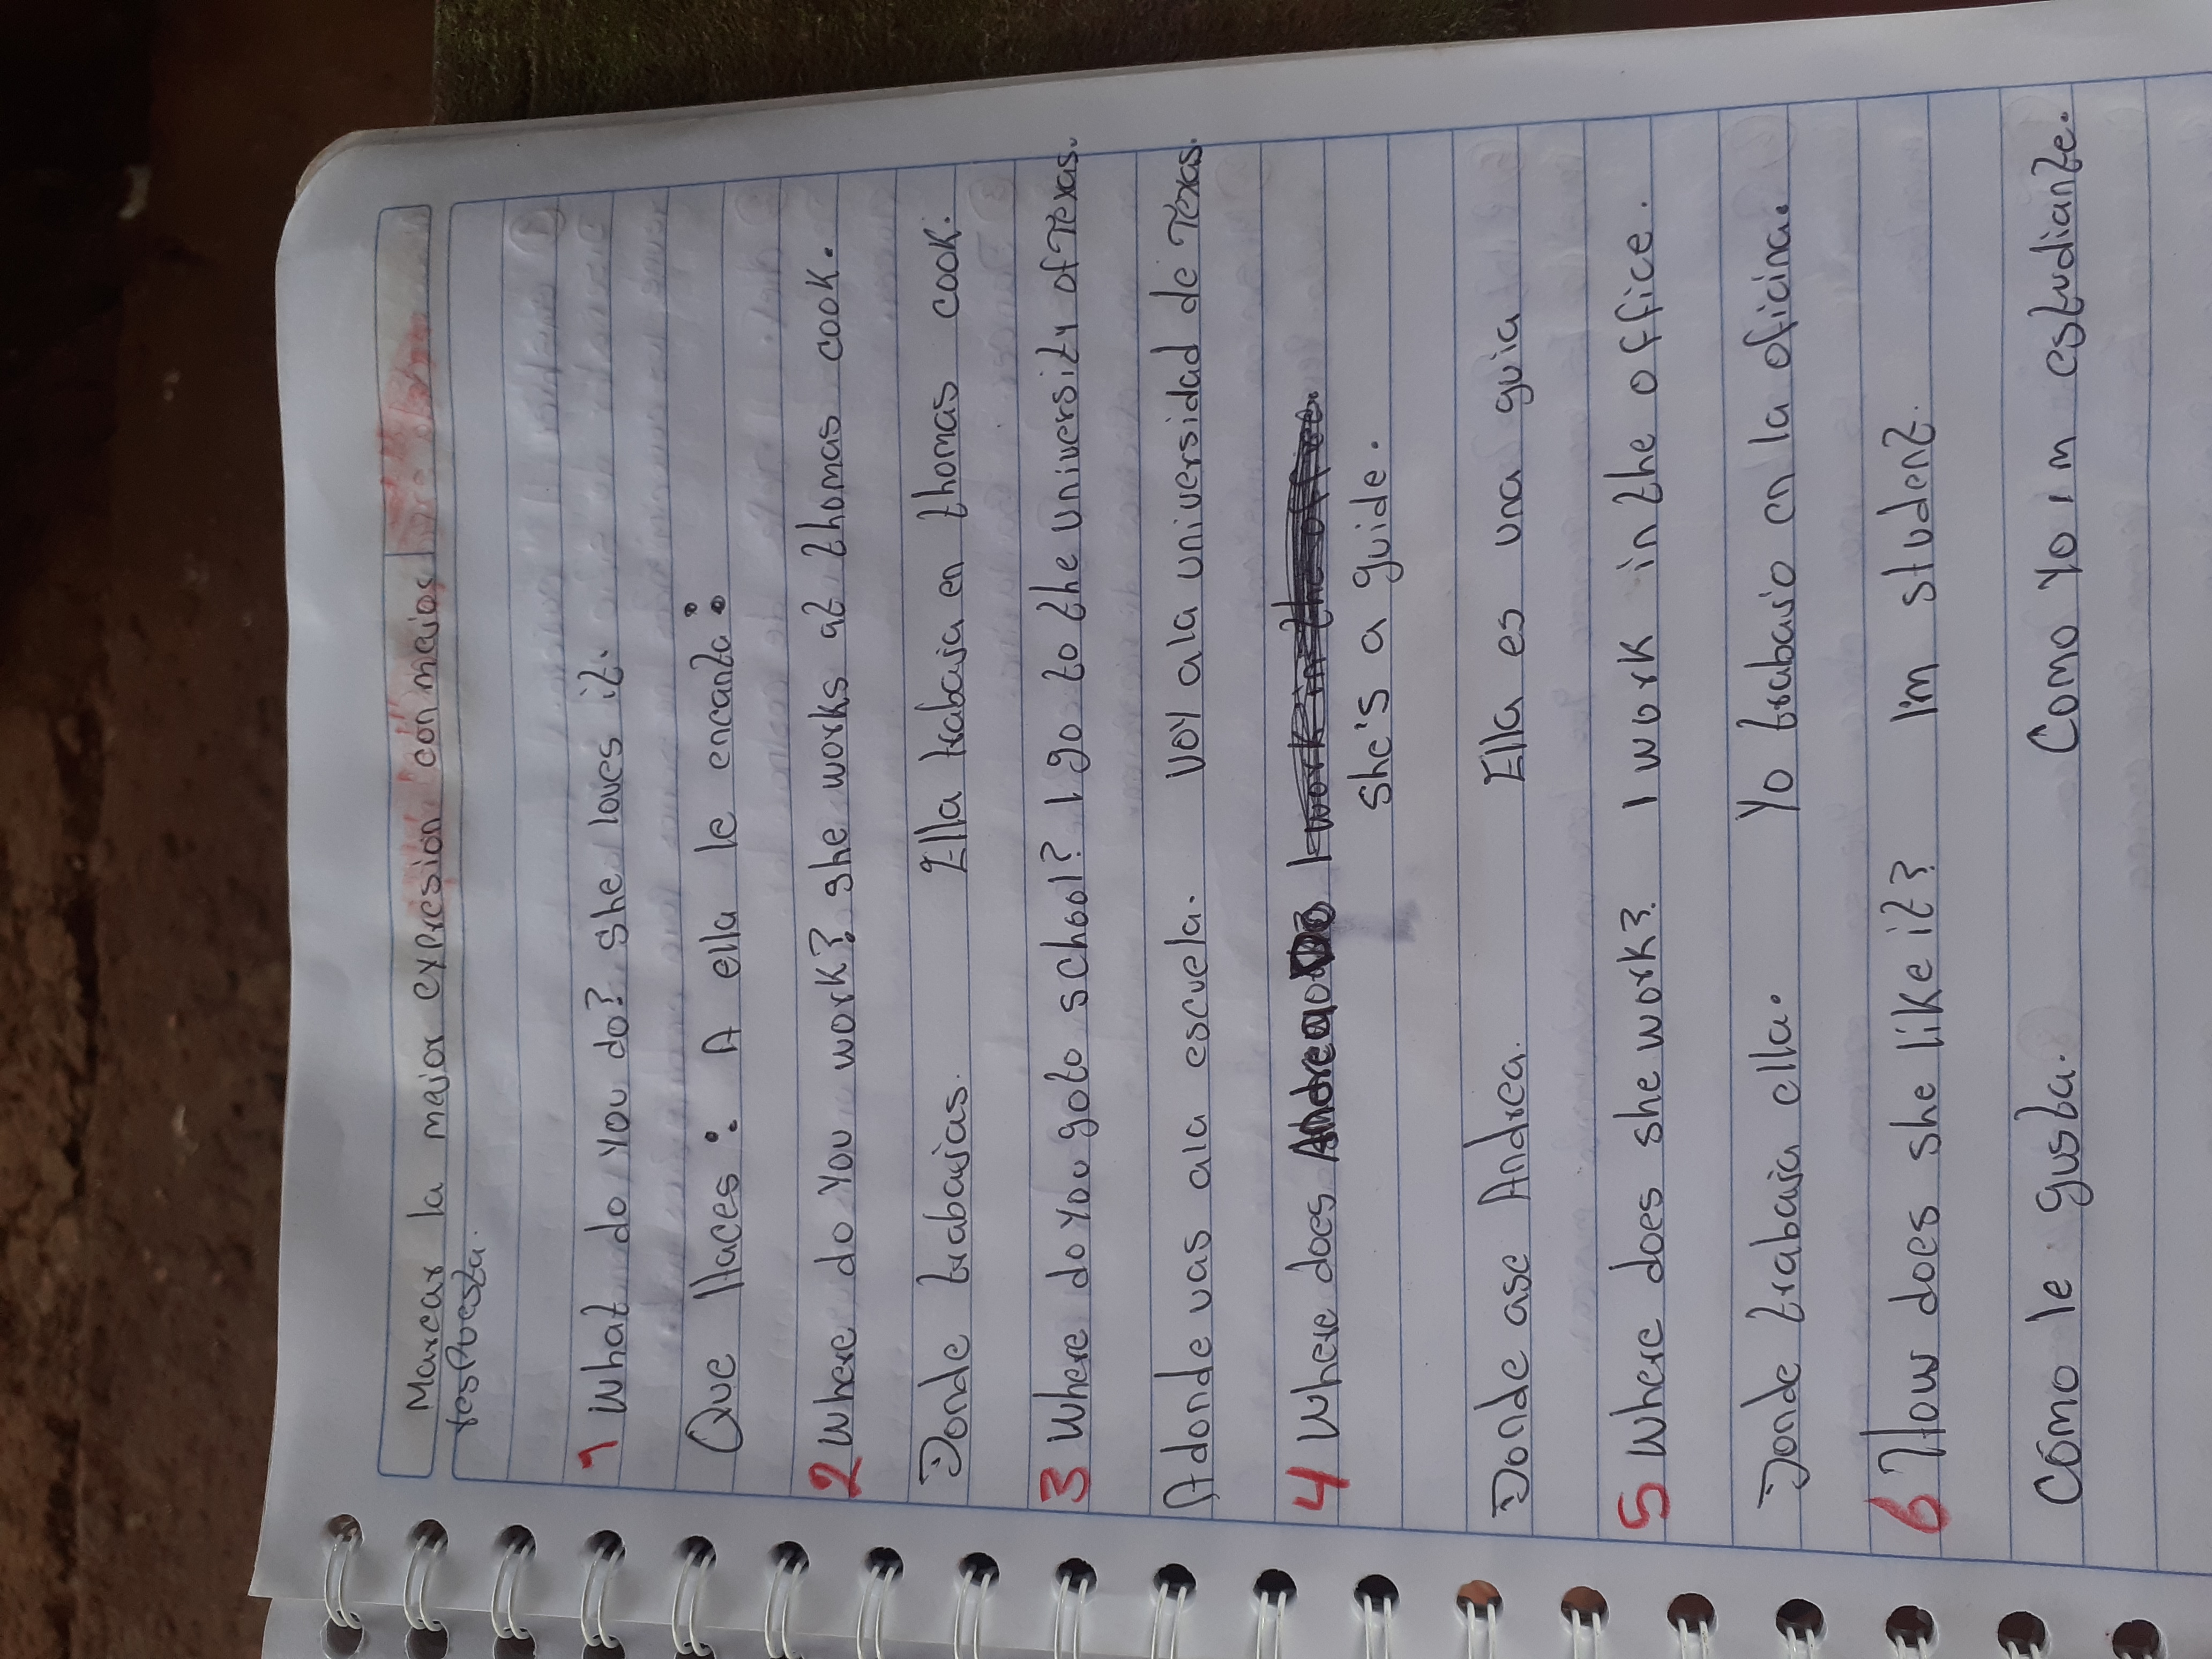 Marcar la maior expresion con maior
respuesta.
1 What do you do? She loves it.
Que llaces: A ella le encanta:
2 Where do you work? she works at thomas cook.
Donde trabajas. Ella trabaja en thomas cook.
3 Where do you go to school? I go to the university of Texas.
Adonde vas ala escuela. Voy ala universidad de Texas.
4 Where does Andrea Do I work in the office.
she's a guide.
Donde ase Andrea. Ella es una guia
5 Where does she work? I work in the office.
Donde trabaja ella. Yo trabajo en la oficina.
6 How does she like it? I'm student.
Como le gusta. Como yo ım estudiante.